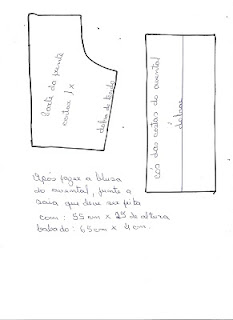 Parte da frente
cortar 1 x
dobra do tecido
cós das costas do avental
dobrar
Após fazer a blusa
do avental, junte a
saia que deve ser feita
com: 55 cm x 25 de altura
babado: 65 cm x 4 cm.